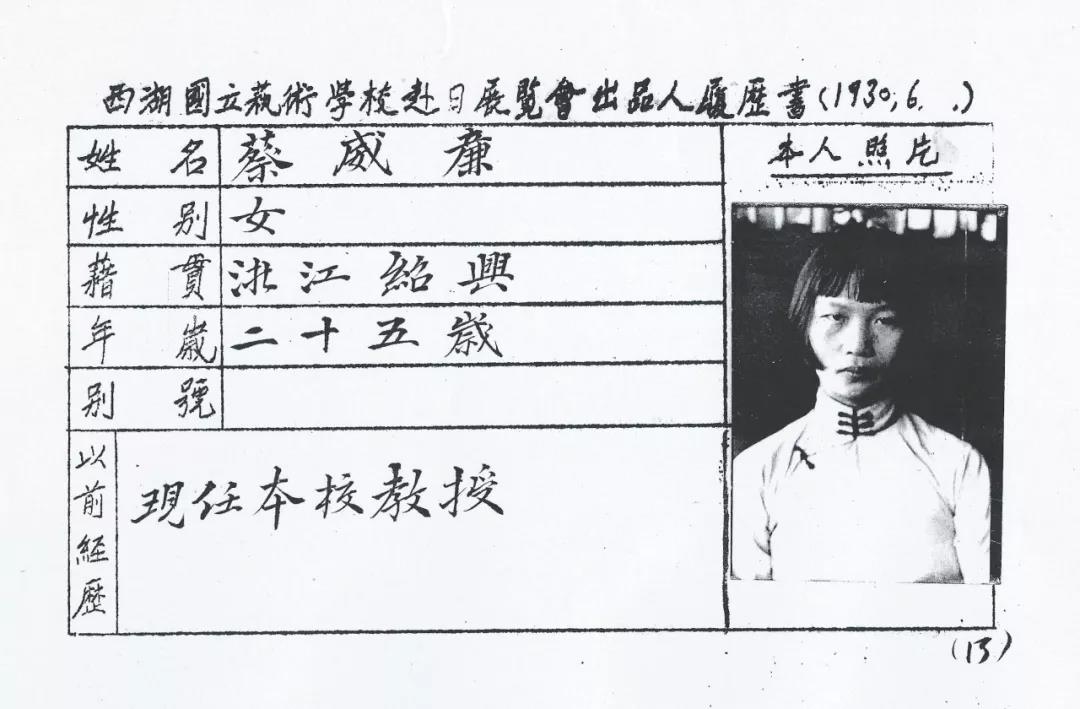 西湖國立藝術學校赴日展覽會出品人履歷書(1930,6. .)
姓名 蔡威廉
本人照片
性别 女
藉貫 浙江紹興
年歲 二十五歲
别號
以前經歷 現任本校教授
(13)